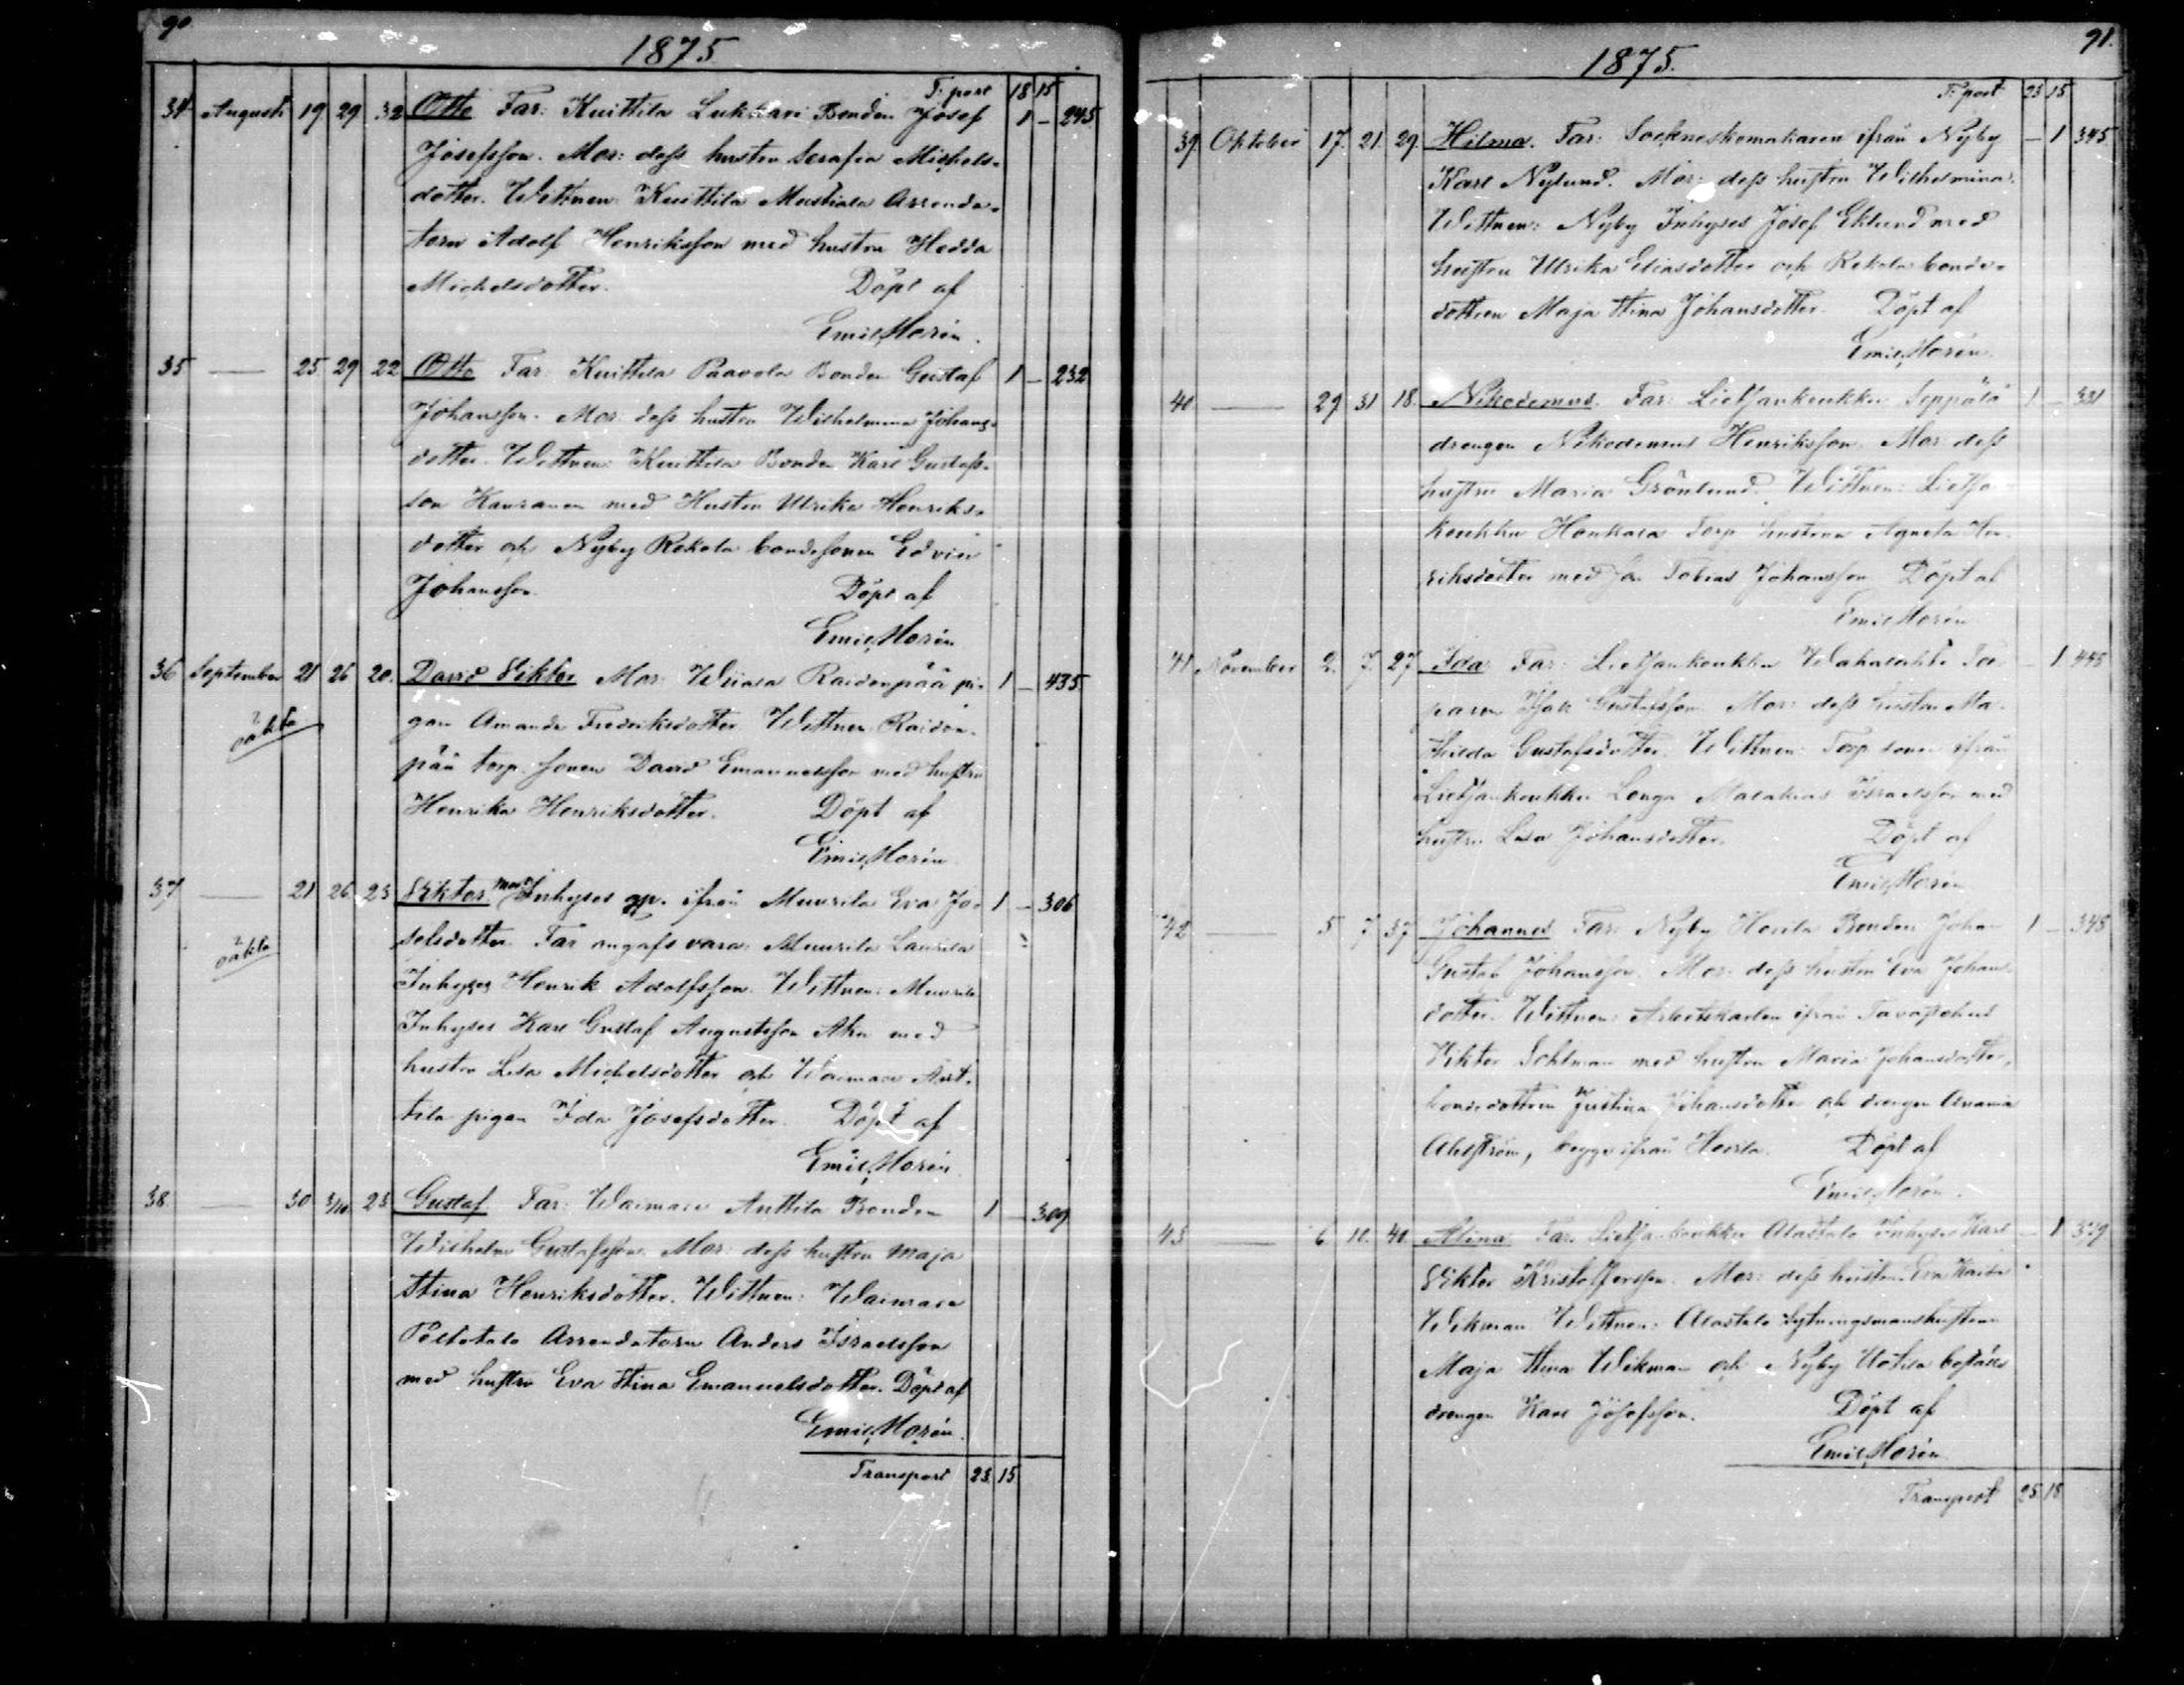 90
1875
T. port 18 15
34 Augusti 19 29 32 Otto Far: Knuttila Lukkari Bonden Josef 1 – 245
Josefsson. Mor: dess hustru Serafia Michels-
dotter. Wittnen: Knuttila Mustiala Arrenda-
torn Adolf Henriksson med hustru Hedda
Michelsdotter. Döpt af
Emil Morén.
35 — 25 29 22 Otto Far: Knuttila Paavola Bonden Gustaf 1 – 232
Johansson. Mor: dess hustru Wilhelmina Johans-
dotter. Wittnen: Knuttila Bonden Karl Gustafs-
son Kauranen med Hustru Ulrika Henriks-
dotter och Nyby Rekola bondesonen Edvin
Johansson. Döpt af
Emil Morén
36 September 21 26 20. David Viktor Mor: Wiiala Raidenpää pi- 1 – 435.
oäkta
gan Amanda Fredriksdotter Wittnen Raiden-
pää torp. sonen David Emanuelsson med hustru
Henrika Henriksdotter. Döpt af
Emil Morén
37 — 21 26 23 Viktor. Mor: Inhyses qp. ifrån Muurila Eva Jo- 1 – 306
oäkta
sefsdotter. Far angafs vara: Muurila Laurila
Inhyses Henrik Adolfsson. Wittnen: Muurila
Inhyses Karl Gustaf Augustsson Ahn med
hustru Lisa Michelsdotter och Waimare Ant-
tila pigan Ida Josefsdotter. Döpt af
Emil Morén.
38. — 30 3/10 23 Gustaf. Far: Waimare Anttila Bonden 1 – 309
Wilhelm Gustafsson. Mor: dess hustru Maja
Stina Henriksdotter. Wittnen: Waimare
Peltotalo Arrendatorn Anders Israelsson
med hustru Eva Stina Emanuelsdotter. Döpt af
Emil Morén.
Transport 23. 15
91.
1875.
T. port 23 15
39 Oktober 17. 21. 29. Hilma. Far: Sockneskomakaren ifrån Nyby – 1 345
Karl Nylund. Mor: dess hustru Wilhelmina.
Wittnen: Nyby Inhyses Josef Eklund med
hustru Ulrika Eliasdotter och Rekola bonde-
dottren Maja Stina Johansdotter. Döpt af
Emil Morén.
40 — 29 31 18. Nikodemus. Far: Lietsankoukku Seppälä 1 – 331
drengen Nikodemus Henriksson. Mor: dess
hustru Maria Grönlund. Wittnen: Lietsa
koukku Honkala Torp hustrun Agneta Hen-
riksdotter med son Tobias Johansson Döpt af
Emil Morén
41 November 2. 7. 27 Ida. Far: Lietsankoukku Wahalahti Tor- 1 445
paren Isak Gustafsson. Mor: dess hustru Ma-
thilda Gustafsdotter. Wittnen: Torp. sonen ifrån
Lietsankoukku Longa Malakias Israelsson med
hustru Lisa Johansdotter. Döpt af
Emil Morén
42 — 5 7 37 Johannes Far: Nyby Hovila Bonden Johan 1 – 345
Gustaf Johansson. Mor: dess hustru Eva Johans-
dotter. Wittnen: Arbetskarlen ifrån Tavastehus
Viktor Sohlman med hustru Maria Johansdotter,
bondedottren Justina Johansdotter och drengen Anania
Ahlström, begge ifrån Hovila. Döpt af
Emil Morén.
43 — 6 10. 40. Alina. Far: Lietsankoukku Alastalo Inhyses Karl – 1
Viktor Kristoffersson. Mor: dess hustru Eva Kaisa
Wikman Wittnen: Alastalo Sytningsmanshustrun
Maja Stina Wikman och Nyby
drengen Karl Josefsson. Döpt af
Emil Morén
Transport 25 18